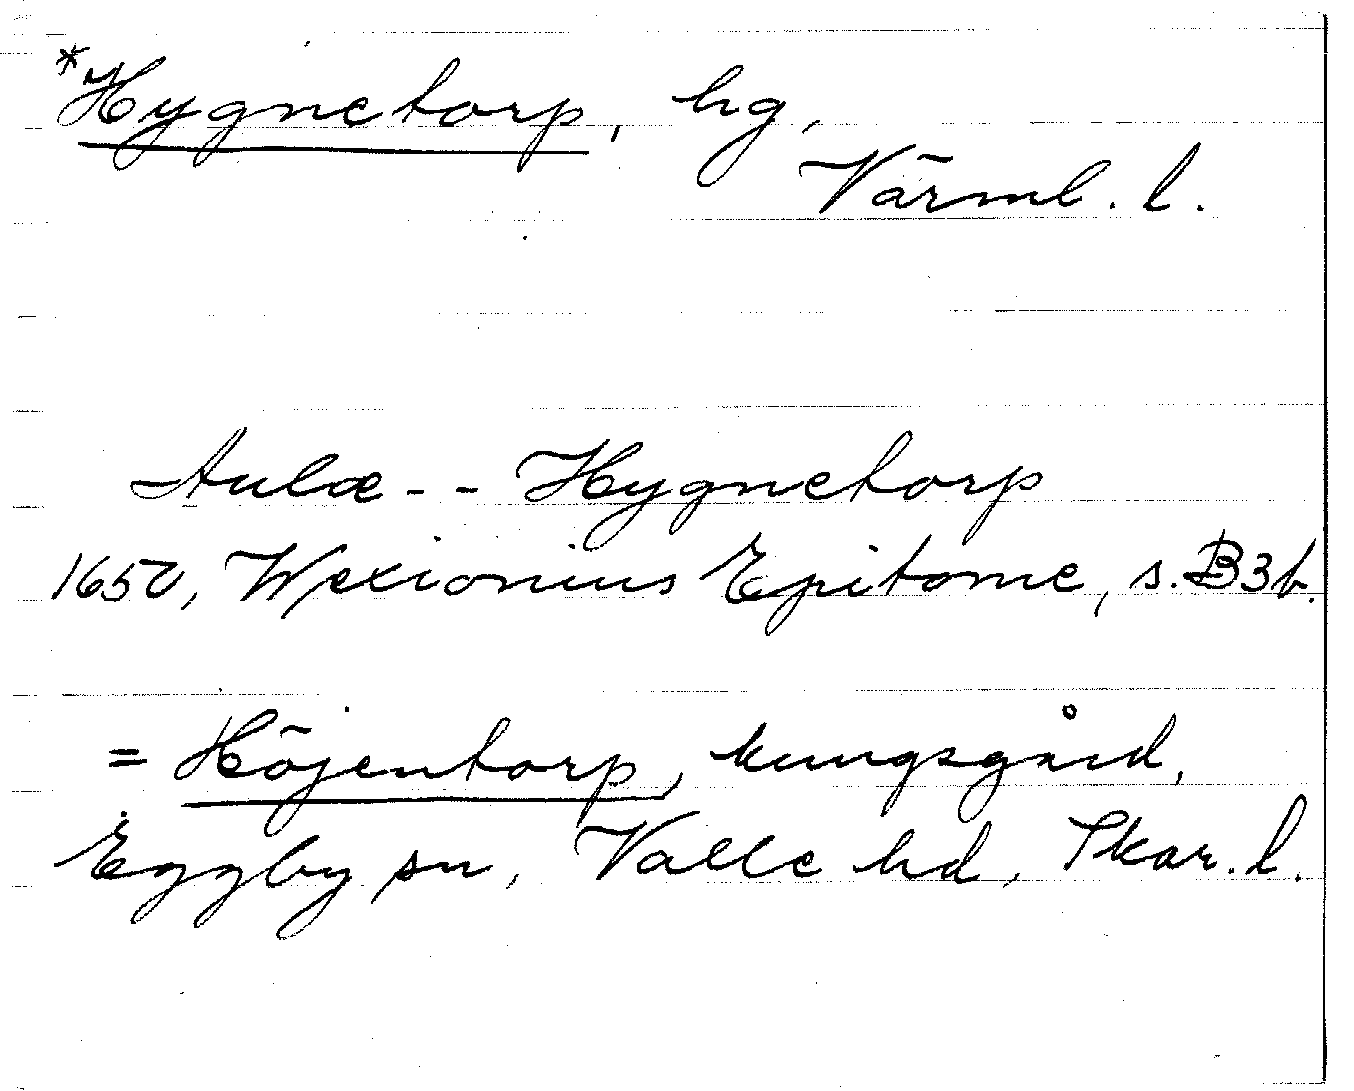 *Hygnetorp, hg,
Värml. l.
Aulæ - - Hygnetorp
1650, Wexionius Epitome, s. B3b.
= Höjentorp, kungsgård,
Eggby sn, Valle hd, Skar. l.